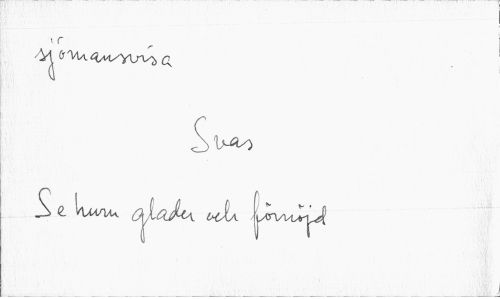 sjömansvisa
Svas
Se huru glader och förnöjd